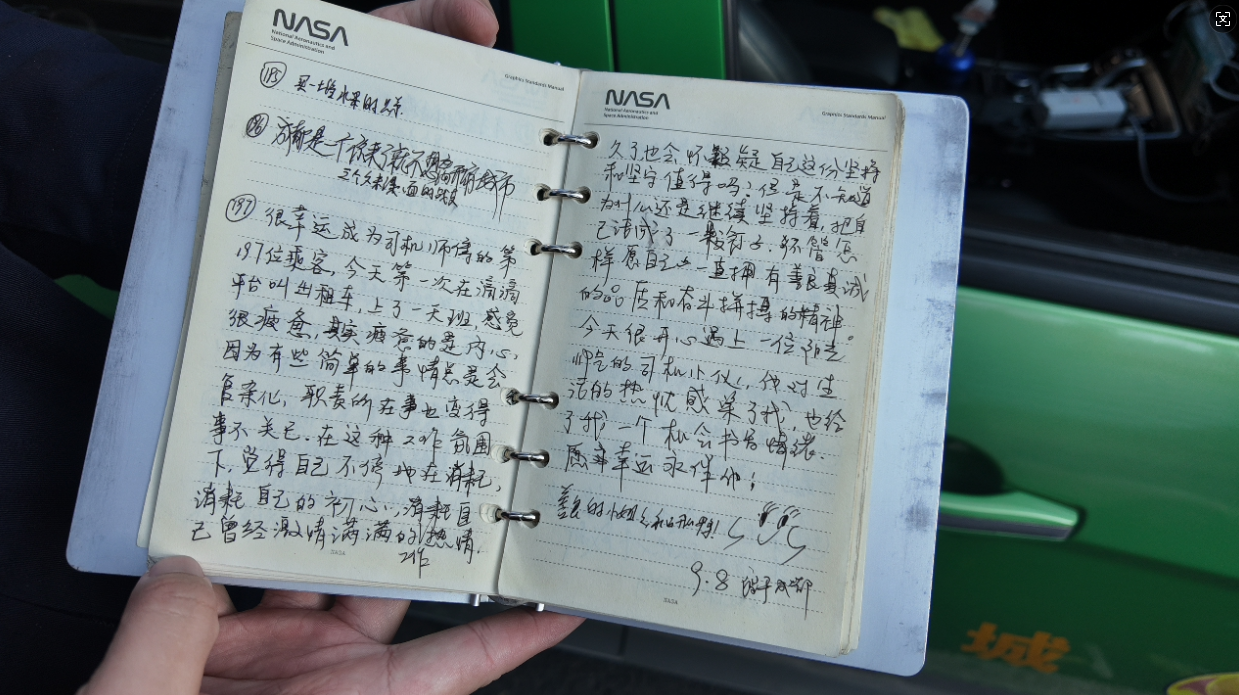 NASA
National Aeronautics and
Space Administration
Graphics Standards Manual
195 买一堆水果的
196 成都是一个你来了就不想离开的城市
197 很幸运成为司机师傅的第
197位乘客,今天第一次在滴滴
平台叫出租车,上了一天班,感觉
很疲惫,其实疲惫的是内心,
因为有些简单的事情总是会
复杂化,职责所在事也变得
事不关己.在这种工作氛围
下,觉得自己不停地在消耗,
消耗自己的初心,消耗自
己曾经激情满满的热情.
工作
NASA
NASA
National Aeronautics and
Space Administration
Graphics Standards Manual
久了也会怀疑自己这份坚持
和坚守值得吗?但是不知道
为什么还是继续坚持着,把自
己活成了一颗钉子,不管怎
样愿自己一直拥有善良真诚
的品质和奋斗拼搏的精神.
今天很开心遇上一位阳光
帅气的司机小伙,他对生
活的热忱感染了我,也给
了我一个机会书写情绪.
愿幸运永伴你!
善良的小姐
9.8 于成都
NASA
城